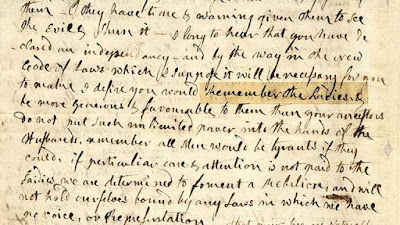 them — they have to us warning given them to see
the Evil & shun it — I long to hear that you have de
clared an independancy — and by the way in the new
Code of Laws which I suppose it will be necessary for you
to make I desire you would Remember the Ladies, &
be more generous & favourable to them than your ancestors
do not put such unlimited power into the hands of the
Husbands. remember all Men would be tyrants if they
could. if perticuliar care & attention is not paid to the
Ladies we are determined to foment a Rebelion, and will
not hold ourselves bound by any Laws in which we have
no voice, or Representation